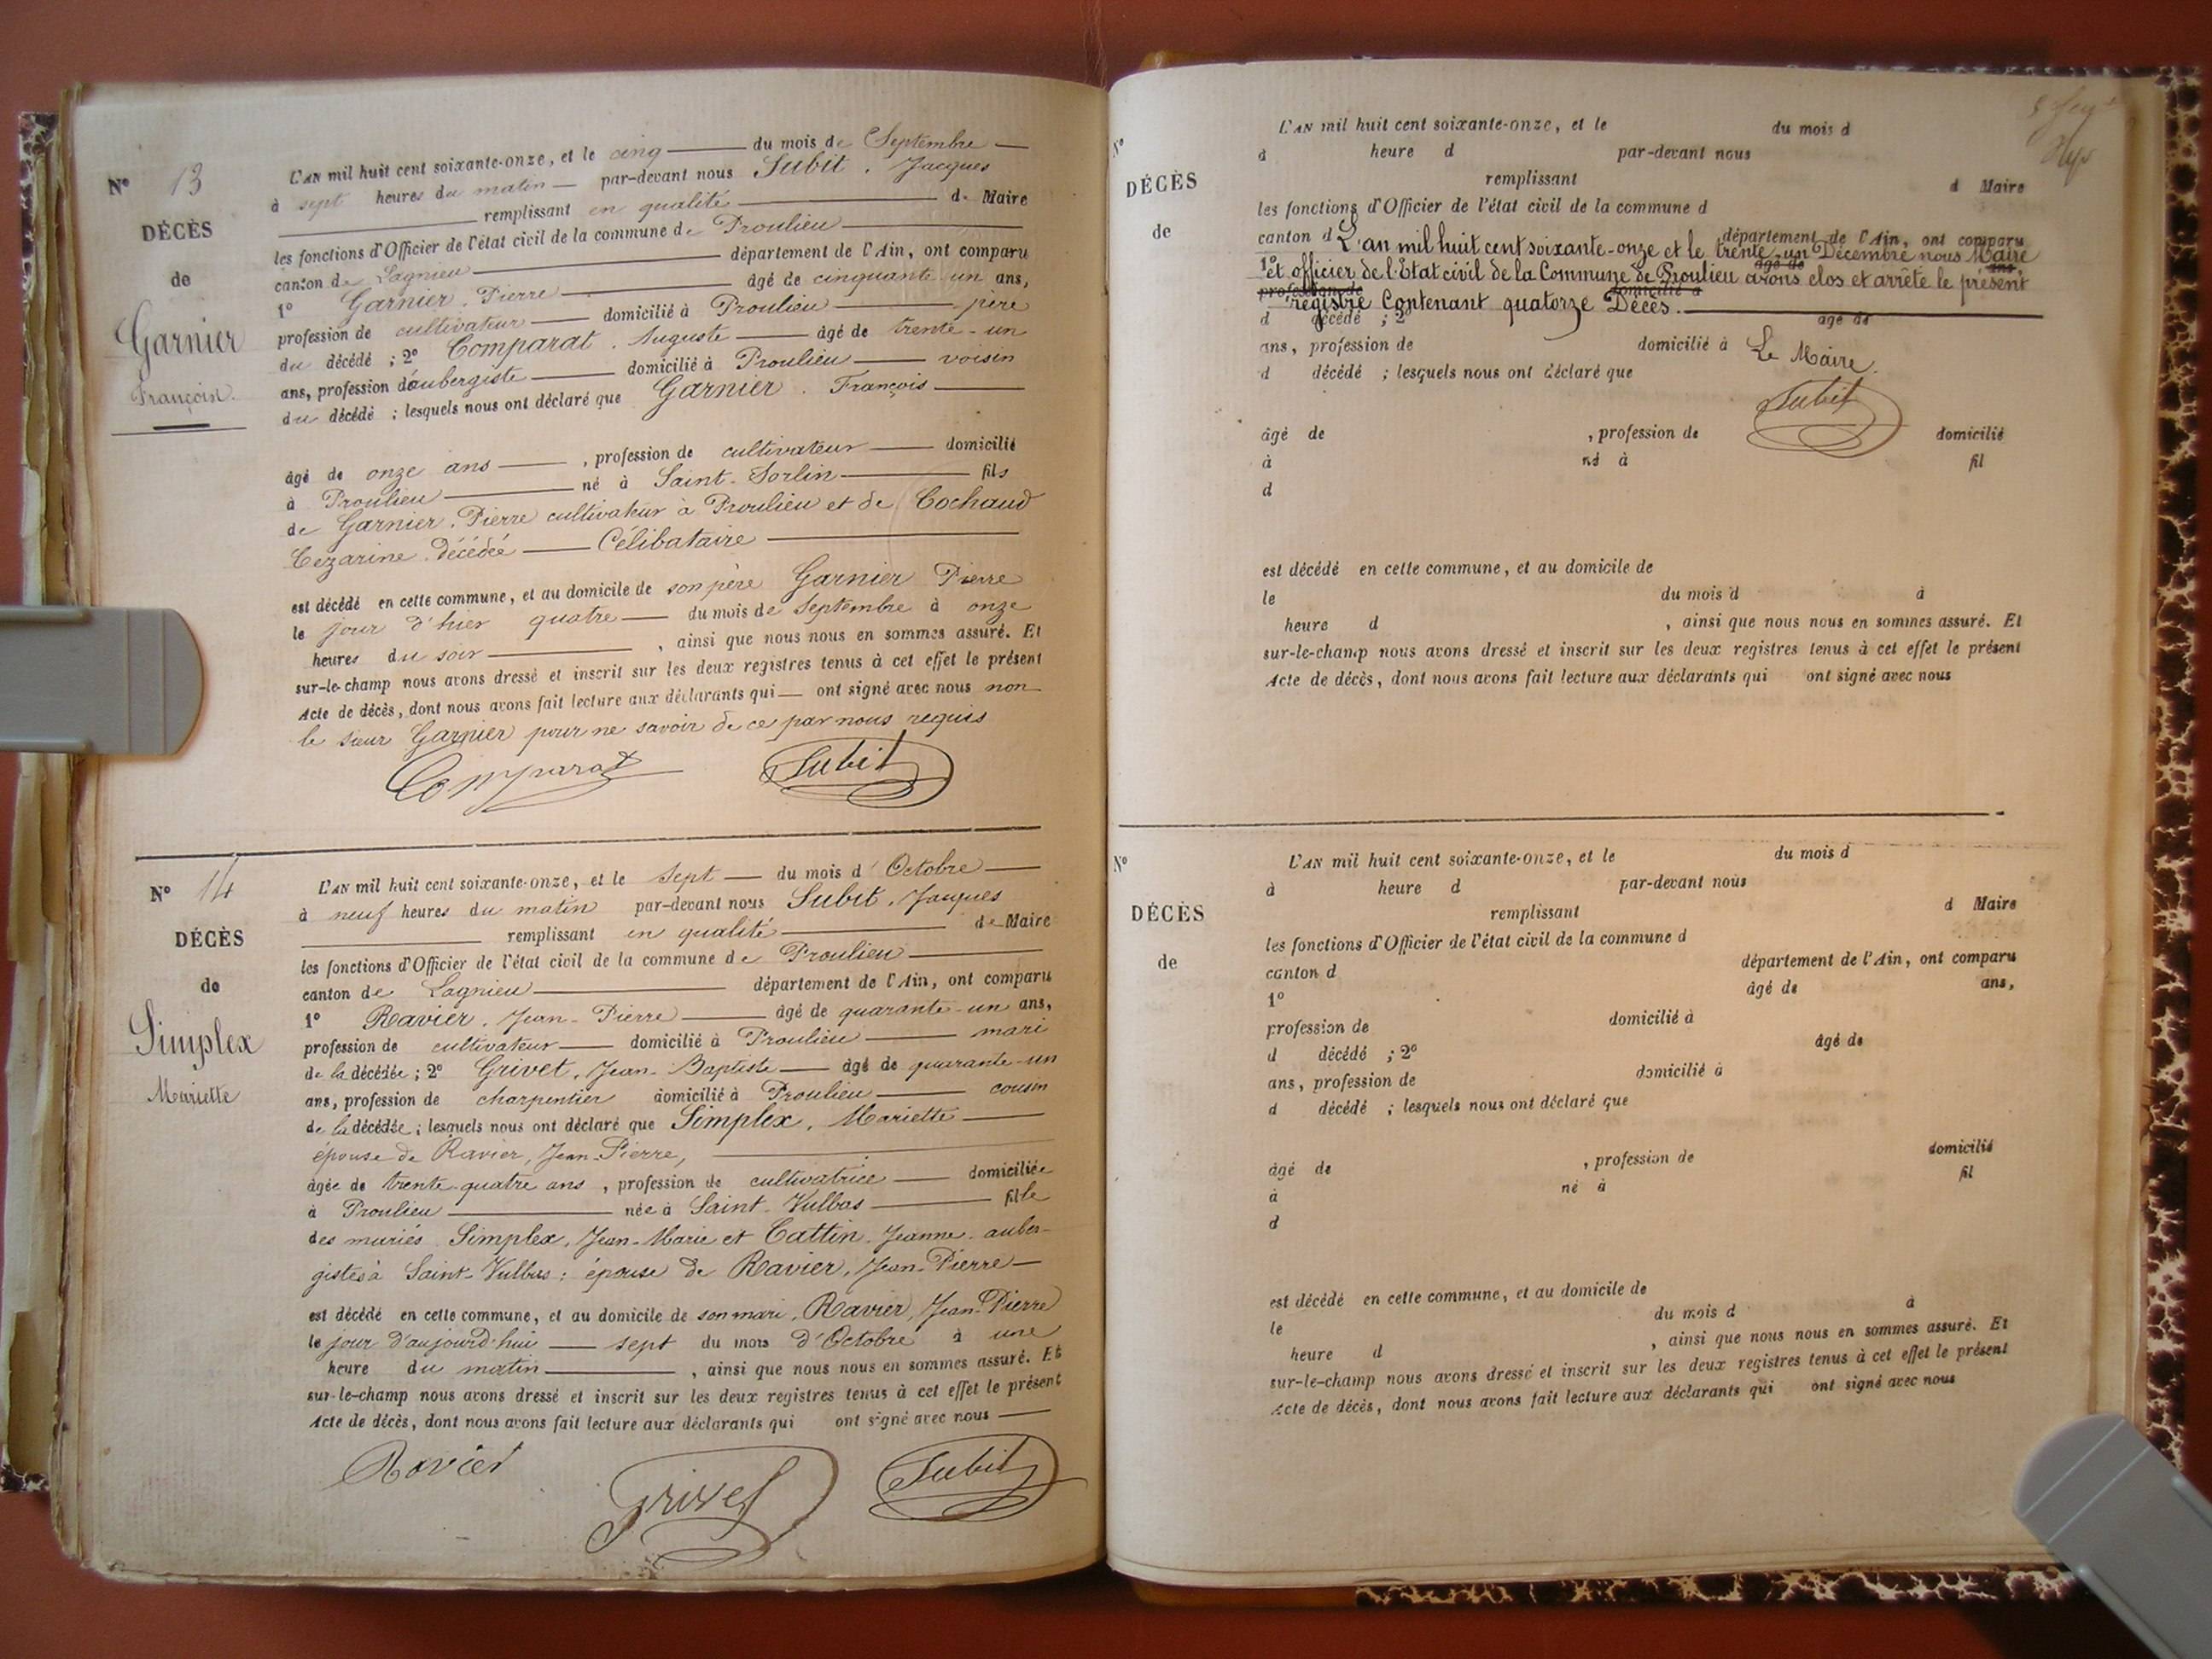 N° 13
DÉCÈS
de
Garnier
François.
L'AN mil huit cent soixante-onze, et le cinq du mois de Septembre
à sept heures du matin par-devant nous Subit, Jacques
remplissant en qualité de Maire
les fonctions d'Officier de l'état civil de la commune de Proulieu
canton de Lagnieu département de l'Ain, ont comparu
1° Garnier, Pierre âgé de cinquante un ans,
profession de cultivateur domicilié à Proulieu père
du décédé ; 2° Comparat, Auguste âgé de trente-un
ans, profession d'aubergiste domicilié à Proulieu voisin
du décédé ; lesquels nous ont déclaré que Garnier, François
âgé de onze ans, profession de cultivateur domicilié
à Proulieu né à Saint-Sorlin fils
de Garnier, Pierre cultivateur à Proulieu et de Cochaud
Cezarine, décédée Célibataire
est décédé en cette commune, et au domicile de son père Garnier Pierre
le jour d'hier quatre du mois de Septembre à onze
heures du soir, ainsi que nous nous en sommes assuré. Et
sur-le-champ nous avons dressé et inscrit sur les deux registres tenus à cet effet le présent
Acte de décès, dont nous avons fait lecture aux déclarants qui ont signé avec nous non
le sieur Garnier pour ne savoir de ce par nous requis
Comparat Subit
N° 14
DÉCÈS
de
Simplex
Mariette
L'AN mil huit cent soixante-onze, et le sept du mois d'Octobre
à neuf heures du matin par-devant nous Subit, Jacques
remplissant en qualité de Maire
les fonctions d'Officier de l'état civil de la commune de Proulieu
canton de Lagnieu département de l'Ain, ont comparu
1° Ravier, Jean-Pierre âgé de quarante-un ans,
profession de cultivateur domicilié à Proulieu mari
de la décédée ; 2° Grivet, Jean-Baptiste âgé de quarante-un
ans, profession de charpentier domicilié à Proulieu cousin
de la décédée ; lesquels nous ont déclaré que Simplex, Mariette
épouse de Ravier, Jean-Pierre,
âgée de trente-quatre ans, profession de cultivatrice domiciliée
à Proulieu née à Saint-Vulbas fille
des mariés Simplex, Jean-Marie et Cattin, Jeanne, auber-
gistes à Saint-Vulbas ; épouse de Ravier, Jean-Pierre
est décédé en cette commune, et au domicile de son mari, Ravier, Jean-Pierre
le jour d'aujourd'hui sept du mois d'Octobre à une
heure du matin, ainsi que nous nous en sommes assuré. Et
sur-le-champ nous avons dressé et inscrit sur les deux registres tenus à cet effet le présent
Acte de décès, dont nous avons fait lecture aux déclarants qui ont signé avec nous
Ravier Grivet Subit
N°
DÉCÈS
de
L'AN mil huit cent soixante-onze, et le du mois d
à heure d par-devant nous
remplissant d Maire
les fonctions d'Officier de l'état civil de la commune d
canton d département de l'Ain, ont comparu
L'an mil huit cent soixante-onze et le trente-un Décembre nous Maire
1° âgé de ans,
et officier de l'Etat civil de la Commune de Proulieu avons clos et arrêté le présent
profession de domicilié à
registre Contenant quatorze Décès.
d décédé ; 2° âgé de
ans, profession de domicilié à
Le Maire.
d décédé ; lesquels nous ont déclaré que
Subit
âgé de , profession de domicilié
à né à fil
d
est décédé en cette commune, et au domicile de
le du mois d à
heure d , ainsi que nous nous en sommes assuré. Et
sur-le-champ nous avons dressé et inscrit sur les deux registres tenus à cet effet le présent
Acte de décès, dont nous avons fait lecture aux déclarants qui ont signé avec nous
N°
DÉCÈS
de
L'AN mil huit cent soixante-onze, et le du mois d
à heure d par-devant nous
remplissant d Maire
les fonctions d'Officier de l'état civil de la commune d
canton d département de l'Ain, ont comparu
1° âgé de ans,
profession de domicilié à
d décédé ; 2° âgé de
ans, profession de domicilié à
d décédé ; lesquels nous ont déclaré que
âgé de , profession de domicilié
à né à fil
d
est décédé en cette commune, et au domicile de
le du mois d à
heure d , ainsi que nous nous en sommes assuré. Et
sur-le-champ nous avons dressé et inscrit sur les deux registres tenus à cet effet le présent
Acte de décès, dont nous avons fait lecture aux déclarants qui ont signé avec nous